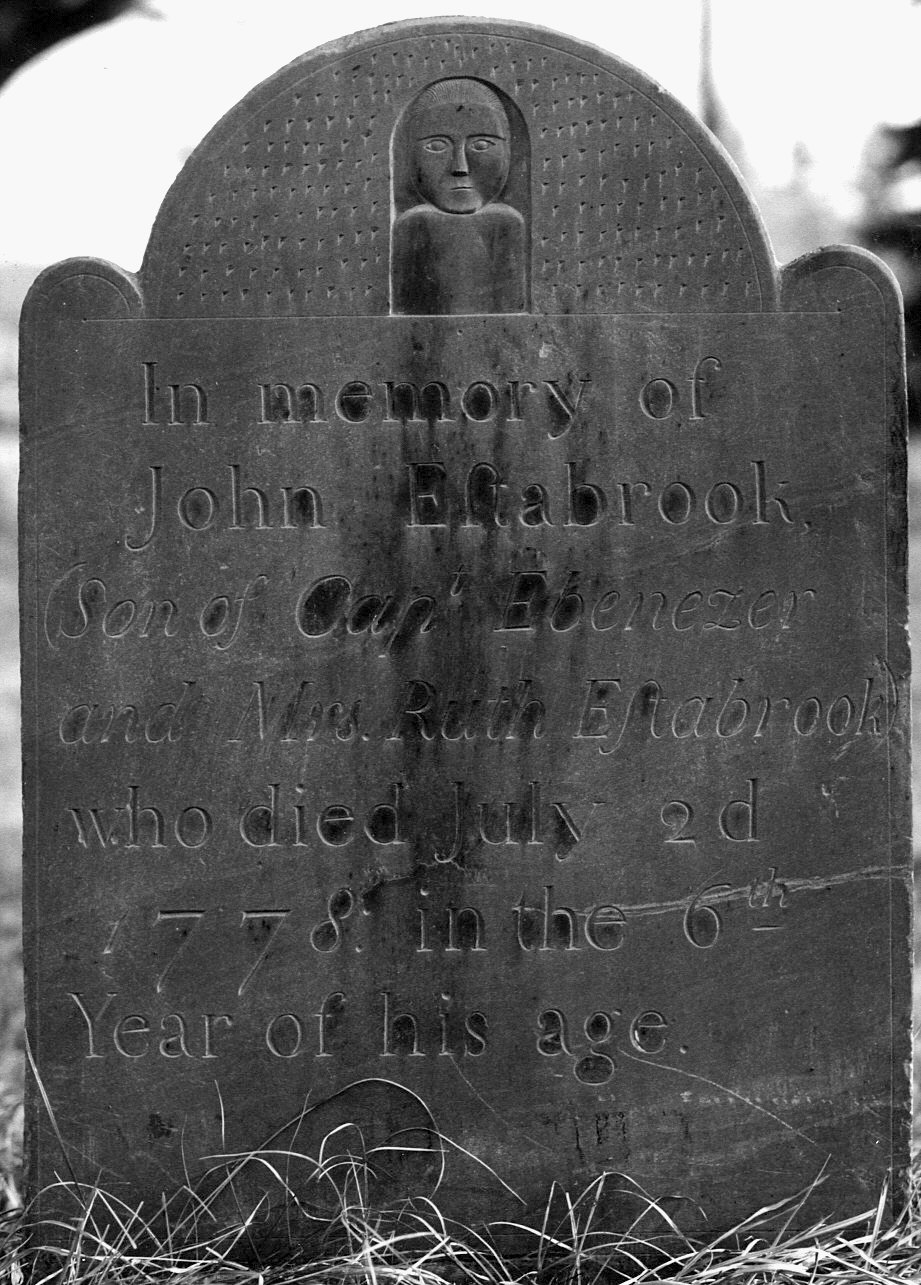 In memory of
John Eſtabrook,
(Son of Capᵗ Ebenezer
and Mrs. Ruth Eſtabrook)
who died July 2d
1778. in the 6ᵗʰ
Year of his age.